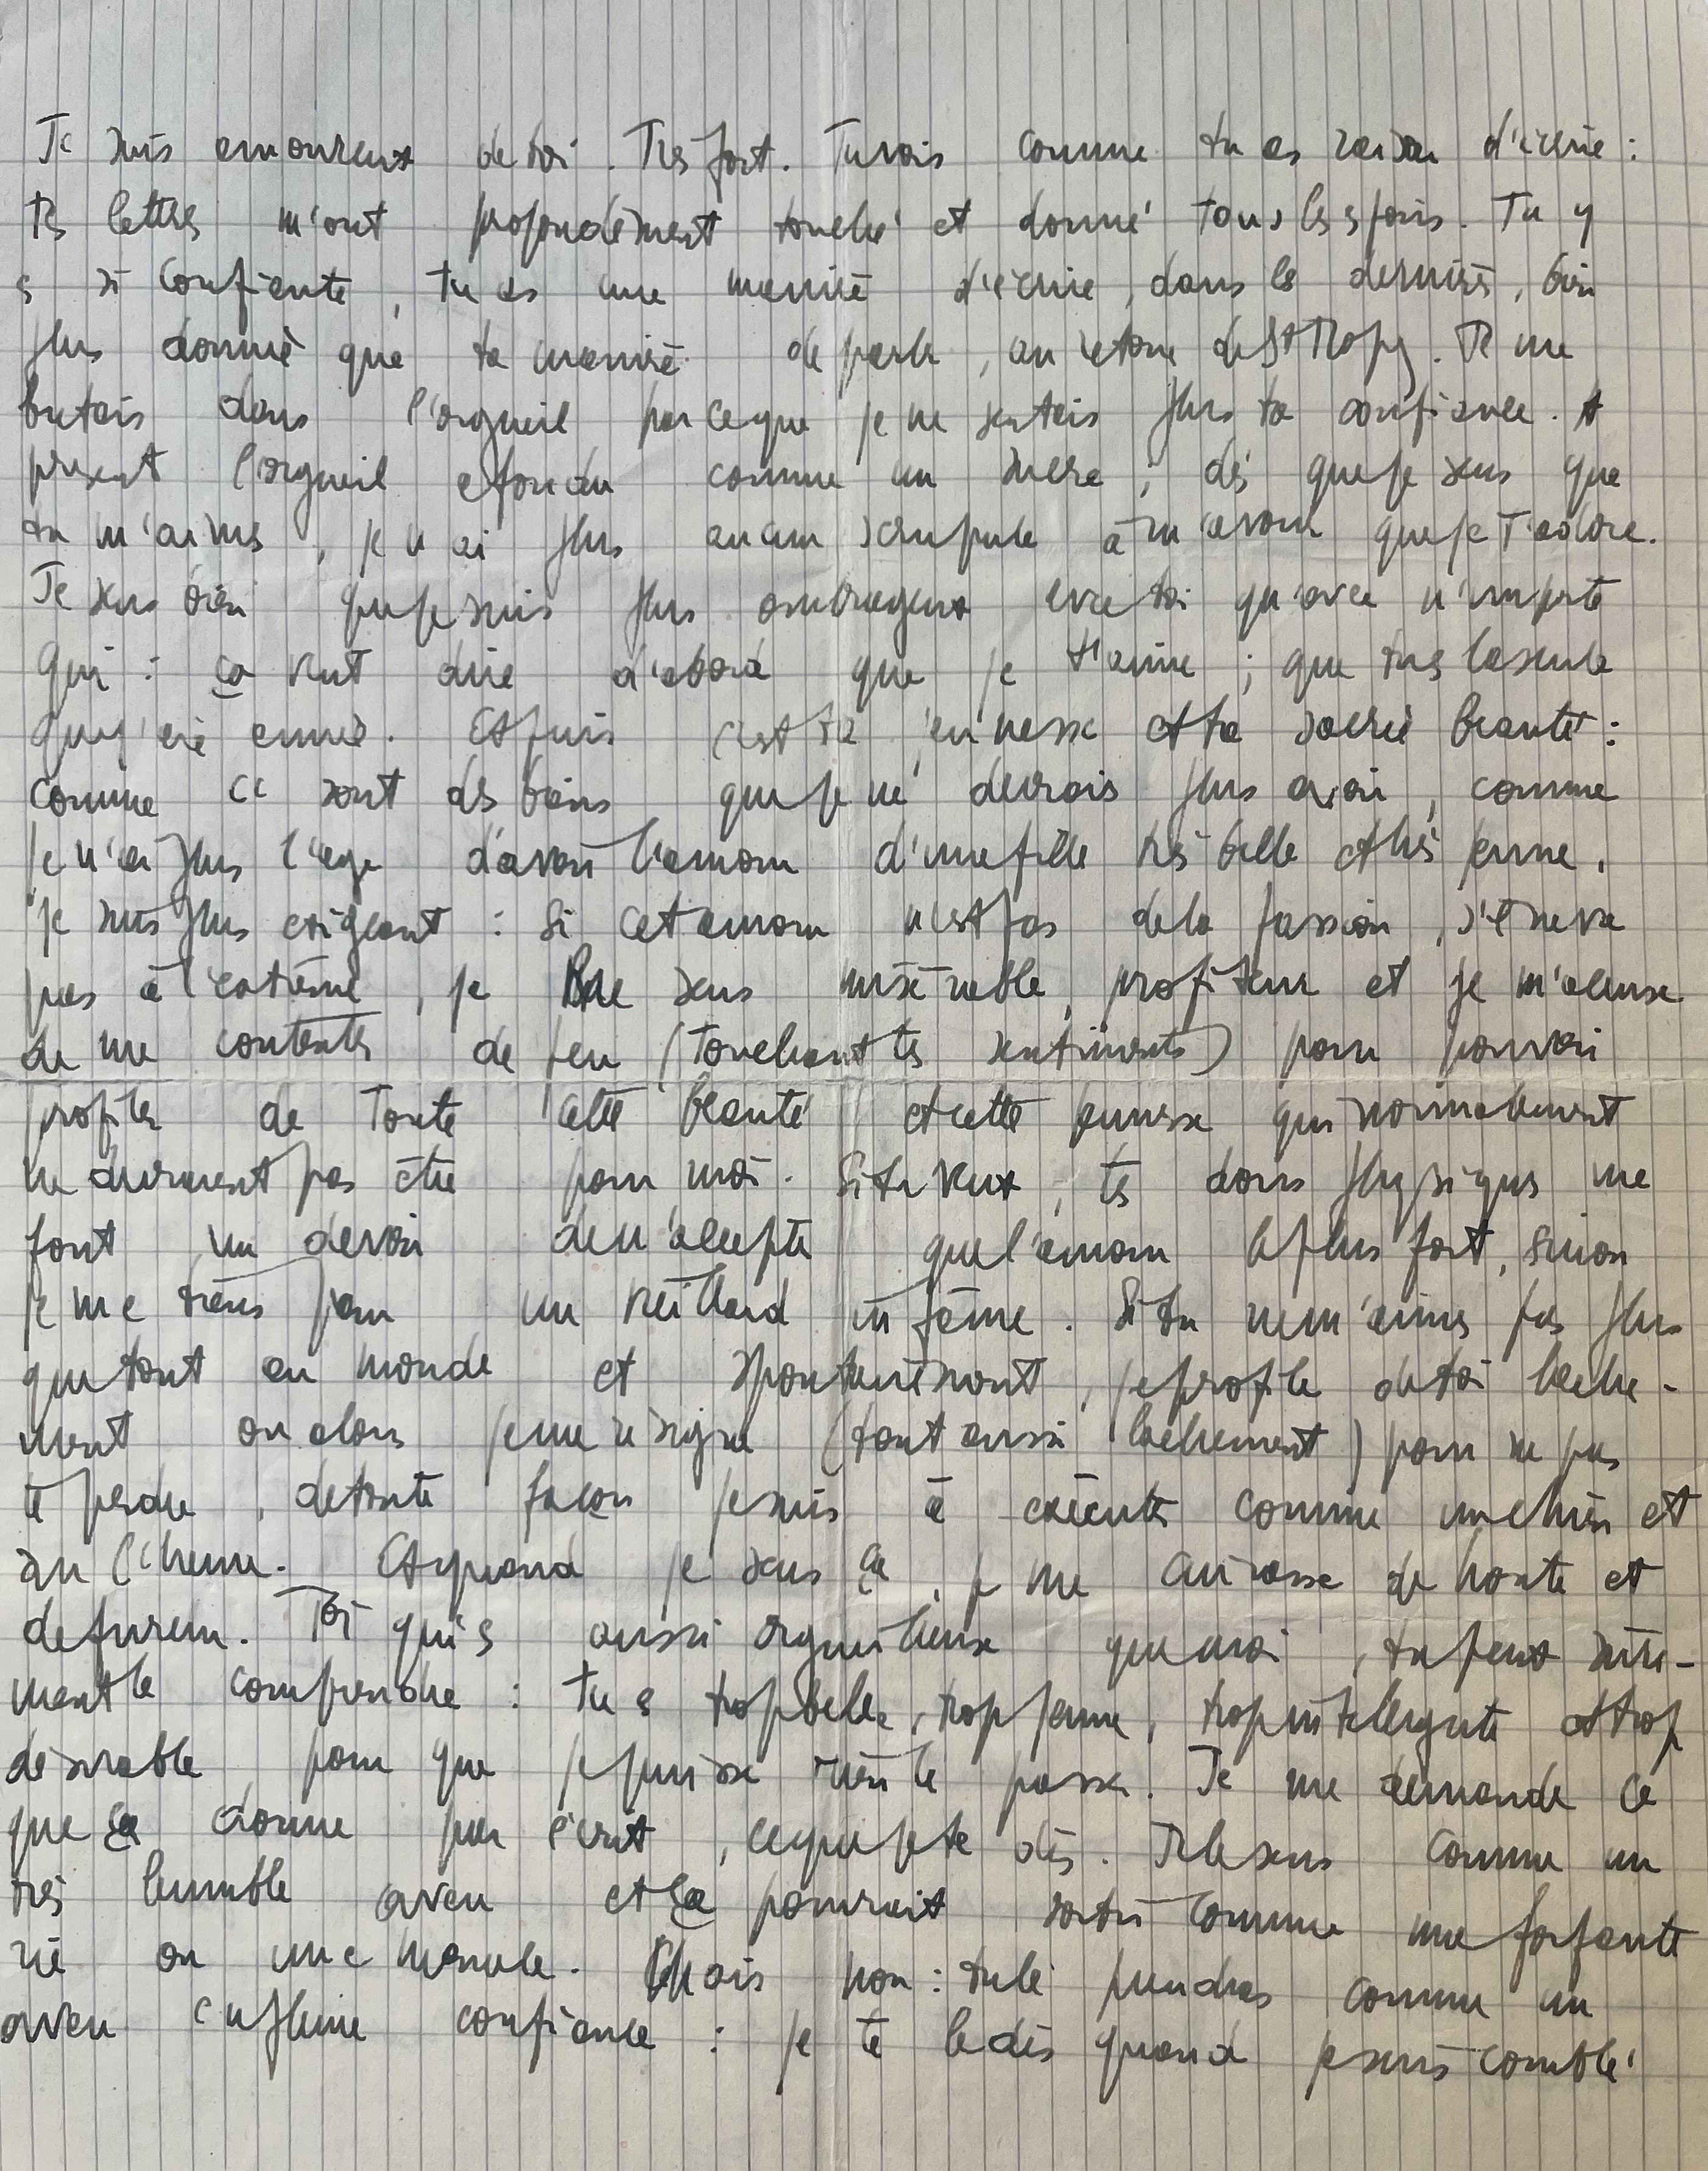 Je suis amoureux de toi. Très fort. Tu vois comme tu as raison d'écrire :
tes lettres m'ont profondément touché et donné tous les espoirs. Tu y
es si confiante, tu as une manière d'écrire, dans les dernières, bien
plus donnée que ta manière de parler, au retour de St Tropez. Je me
butais dans l'orgueil parce que je ne sentais plus ta confiance. A
présent l'orgueil a fondu comme un sucre ; dès que je sens que
tu m'aimes, je n'ai plus aucun scrupule à m'avouer que je t'adore.
Je sens bien que je suis plus ombrageux avec toi qu'avec n'importe
qui : ça veut dire d'abord que je t'aime ; que tu es la seule
que j'aie aimée. Et puis c'est ta jeunesse et ta sacrée beauté :
comme ce sont des biens que je ne devrais plus avoir, comme
je n'ai plus l'âge d'avoir l'amour d'une fille très belle et très jeune,
je suis plus exigeant : si cet amour n'est pas de la passion, s'il ne va
pas à l'extrême, je me sens misérable, profiteur et je m'accuse
de me contenter de peu (touchant tes sentiments) pour pouvoir
profiter de toute cette beauté et cette jeunesse qui normalement
ne devraient pas être pour moi. Si tu veux, tes dons physiques me
font un devoir de n'accepter que l'amour le plus fort, sinon
je me tiens pour un vieillard infâme. Si tu ne m'aimes pas plus
que tout au monde et spontanément, je profite de toi lâche-
ment ou alors je me résigne (tout aussi lâchement) pour ne pas
te perdre, de toute façon je suis à exécuter comme un chien et
sur l'heure. Et quand je sens ça, je me cuirasse de honte et
de fureur. Toi qui es aussi orgueilleuse que moi, tu peux sûre-
ment le comprendre : tu es trop belle, trop jeune, trop intelligente et trop
désirable, pour que je puisse rien te passer. Je me demande ce
que ça donne par écrit, ce que je te dis. Je le sens comme un
très humble aveu et ça pourrait sortir comme une forfante
rie ou une menace. Mais non : tu le prendras comme un
aveu en pleine confiance : je te le dis quand je suis comblé